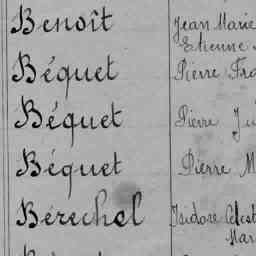 Benoît Jean Marie
Etienne
Béquet Pierre Fra
Béquet Pierre Ju
Béquet Pierre M
Bérechel Isidore Célest
Mar